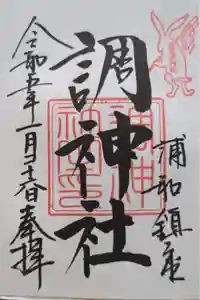 浦和鎮座
調神社
令和五年一月二十六日奉拝